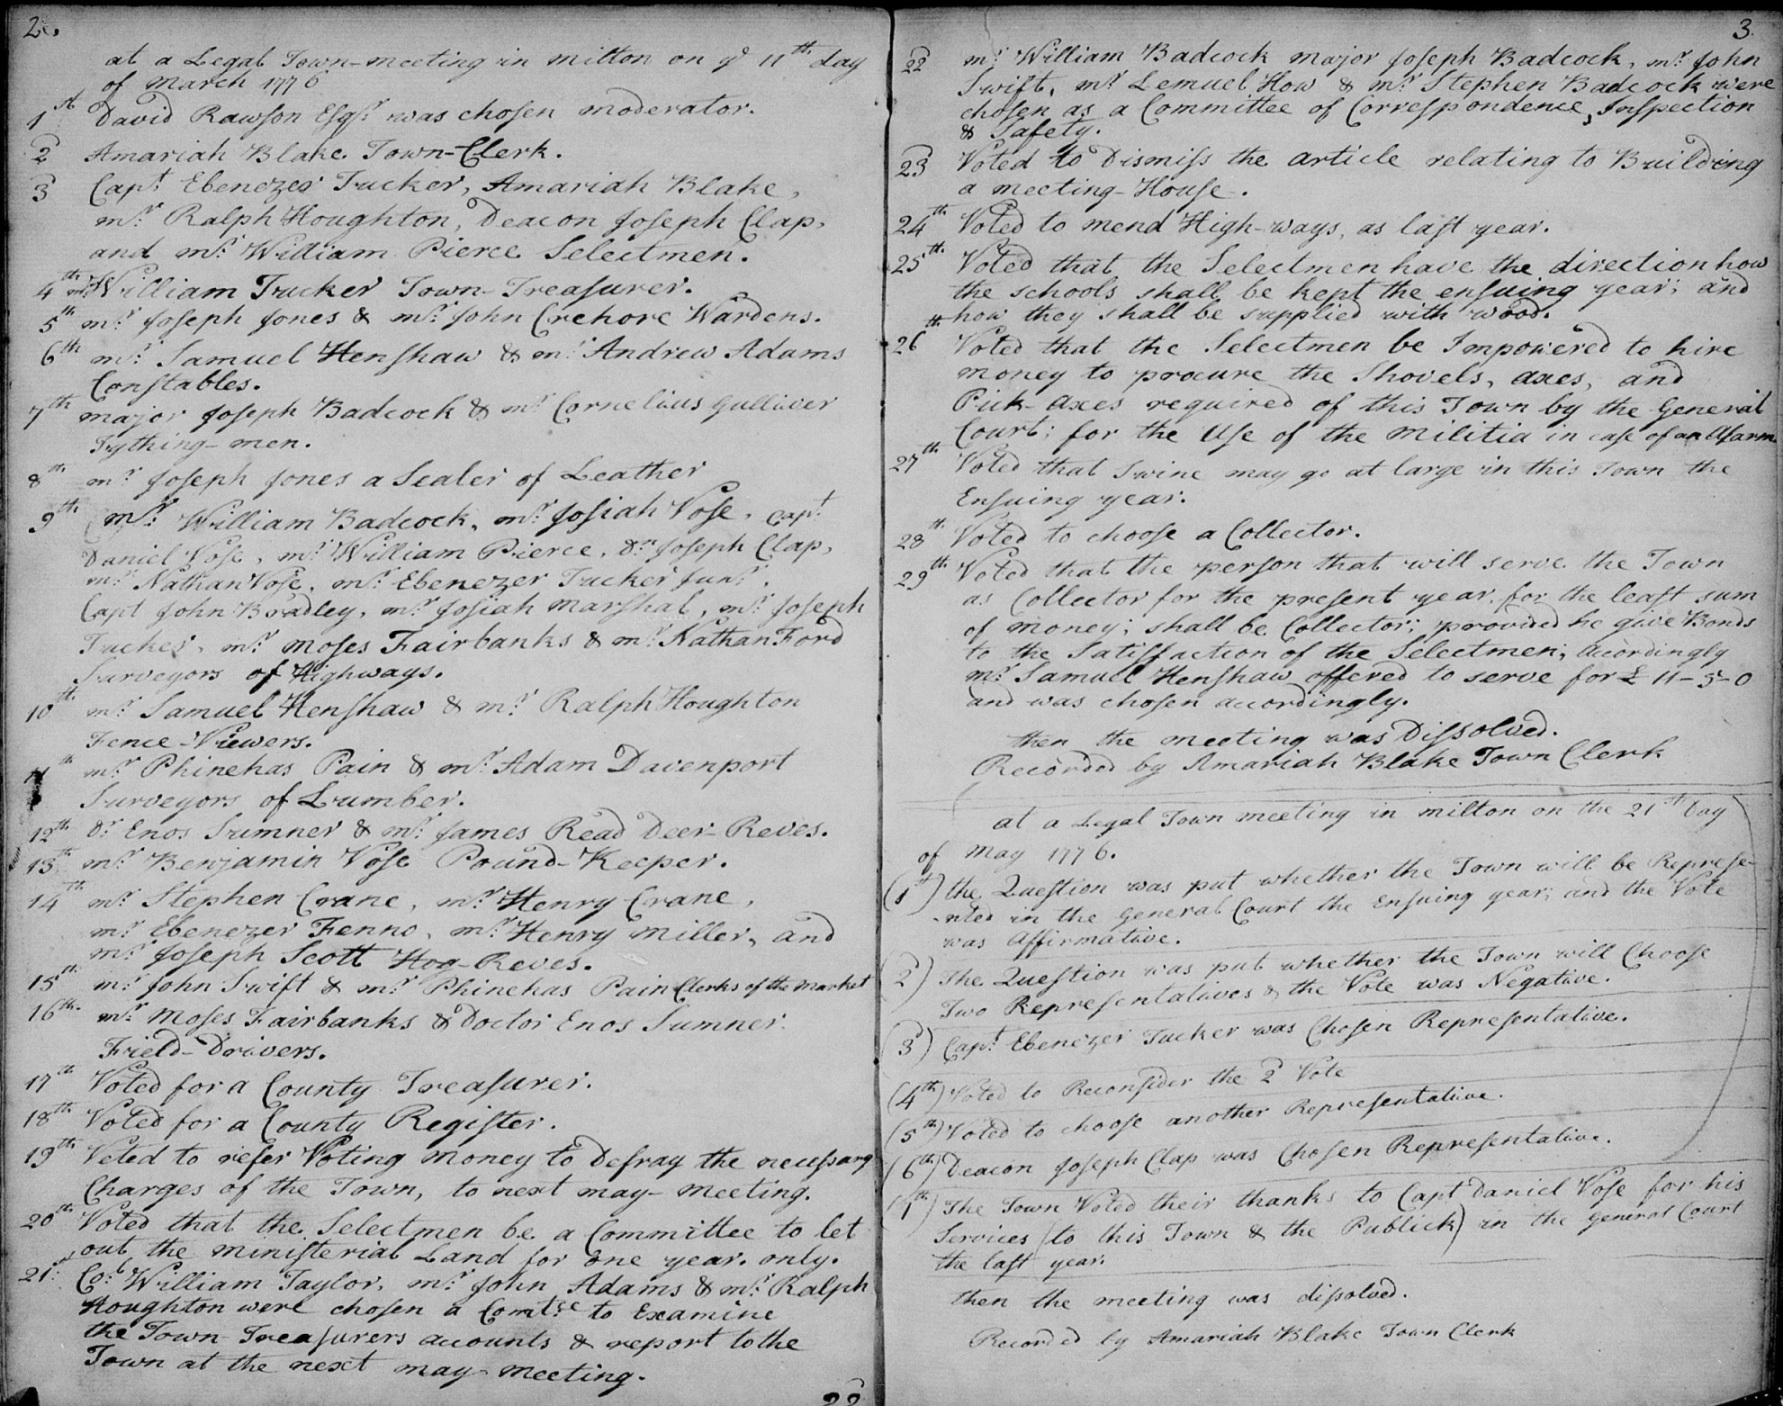 2.
at a Legal Town-meeting in milton on yᵉ 11th day
of March 1776
1st David Rawson Esqr. was chosen moderator.
2 Amariah Blake Town-Clerk.
3 Capt Ebenezer Tucker, Amariah Blake,
mr. Ralph Houghton, Deacon Joseph Clap,
and mr. William Pierce Selectmen.
4th mr William Tucker Town-Treasurer.
5th mr. Joseph Jones & mr. John Crehore Wardens.
6th mr. Samuel Henshaw & mr. Andrew Adams
Constables.
7th major Joseph Badcock & mr Cornelius Gulliver
Tything-men.
8th mr Joseph Jones a Sealer of Leather
9th mr. William Badcock, mr. Josiah Vose, Capt
Daniel Vose, mr. William Pierce, Dn Joseph Clap,
mr. Nathan Vose, mr. Ebenezer Tucker junr.
Capt John Bradley, mr. Josiah Marshal, mr. Joseph
Tucker, mr. Moses Fairbanks & mr. Nathan Ford
Surveyors of Highways.
10th mr. Samuel Henshaw & mr. Ralph Houghton
Fence-Viewers.
11th mr. Phinehas Pain & mr. Adam Davenport
Surveyors of Lumber.
12th Dr Enos Sumner & mr. James Read Deer-Reves.
13th mr. Benjamin Vose Pound-Keeper.
14th mr Stephen Crane, mr. Henry Crane,
mr. Ebenezer Fenno, mr. Henry Miller, and
mr. Joseph Scott Hog-Reves.
15th mr. John Swift & mr. Phinehas Pain Clerks of the market
16th mr. Moses Fairbanks & Doctor Enos Sumner.
Field-Drivers.
17th Voted for a County Treasurer.
18th Voted for a County Register.
19th Voted to refer Voting money to Defray the necessary
Charges of the Town, to next may-meeting.
20th Voted that the Selectmen be a Committee to let
out the ministerial Land for one year only.
21st Col William Taylor, mr. John Adams & mr. Ralph
Houghton were chosen a Comtee to Examine
the Town Treasurers accounts & report to the
Town at the next may-meeting.
22
3.
22 mr. William Badcock major Joseph Badcock, mr. John
Swift, mr. Lemuel How & mr. Stephen Badcock were
chosen as a Committee of Correspondence, Inspection
& Safety.
23 Voted to Dismiss the article relating to Building
a meeting-House.
24th Voted to mend High-ways, as last year.
25th Voted that the Selectmen have the direction how
the schools shall be kept the ensuing year; and
how they shall be supplied with wood.
26th Voted that the Selectmen be Impowered to hire
money to procure the Shovels, axes, and
Pick-axes required of this Town by the General
Court; for the Use of the militia in case of an Alarm
27th Voted that Swine may go at large in this Town the
Ensuing year.
28th Voted to choose a Collector.
29th Voted that the person that will serve the Town
as Collector for the present year, for the least sum
of money; shall be Collector; provided he give Bonds
to the Satisfaction of the Selectmen; acordingly
mr. Samuel Henshaw offered to serve for £ 11-5-0
and was chosen acordingly.
then the meeting was Dissolved.
Recorded by Amariah Blake Town Clerk
at a Legal Town meeting in milton on the 21st Day
of May 1776.
(1st) the Question was put whether the Town will be Represe-
nted in the General Court the Ensuing year; and the Vote
was Affirmative.
2) The Question was put whether the Town will Choose
Two Representatives & the Vote was Negative.
(3) Capt Ebenezer Tucker was Chosen Representative.
(4th) Voted to Reconsider the 2 Vote
(5th) Voted to choose another Representative.
(6th) Deacon Joseph Clap was Chosen Representative.
(7th) The Town Voted their thanks to Capt Daniel Vose for his
Services (to this Town & the Publick) in the General Court
the last year.
then the meeting was dissolved.
Recorded by Amariah Blake Town Clerk